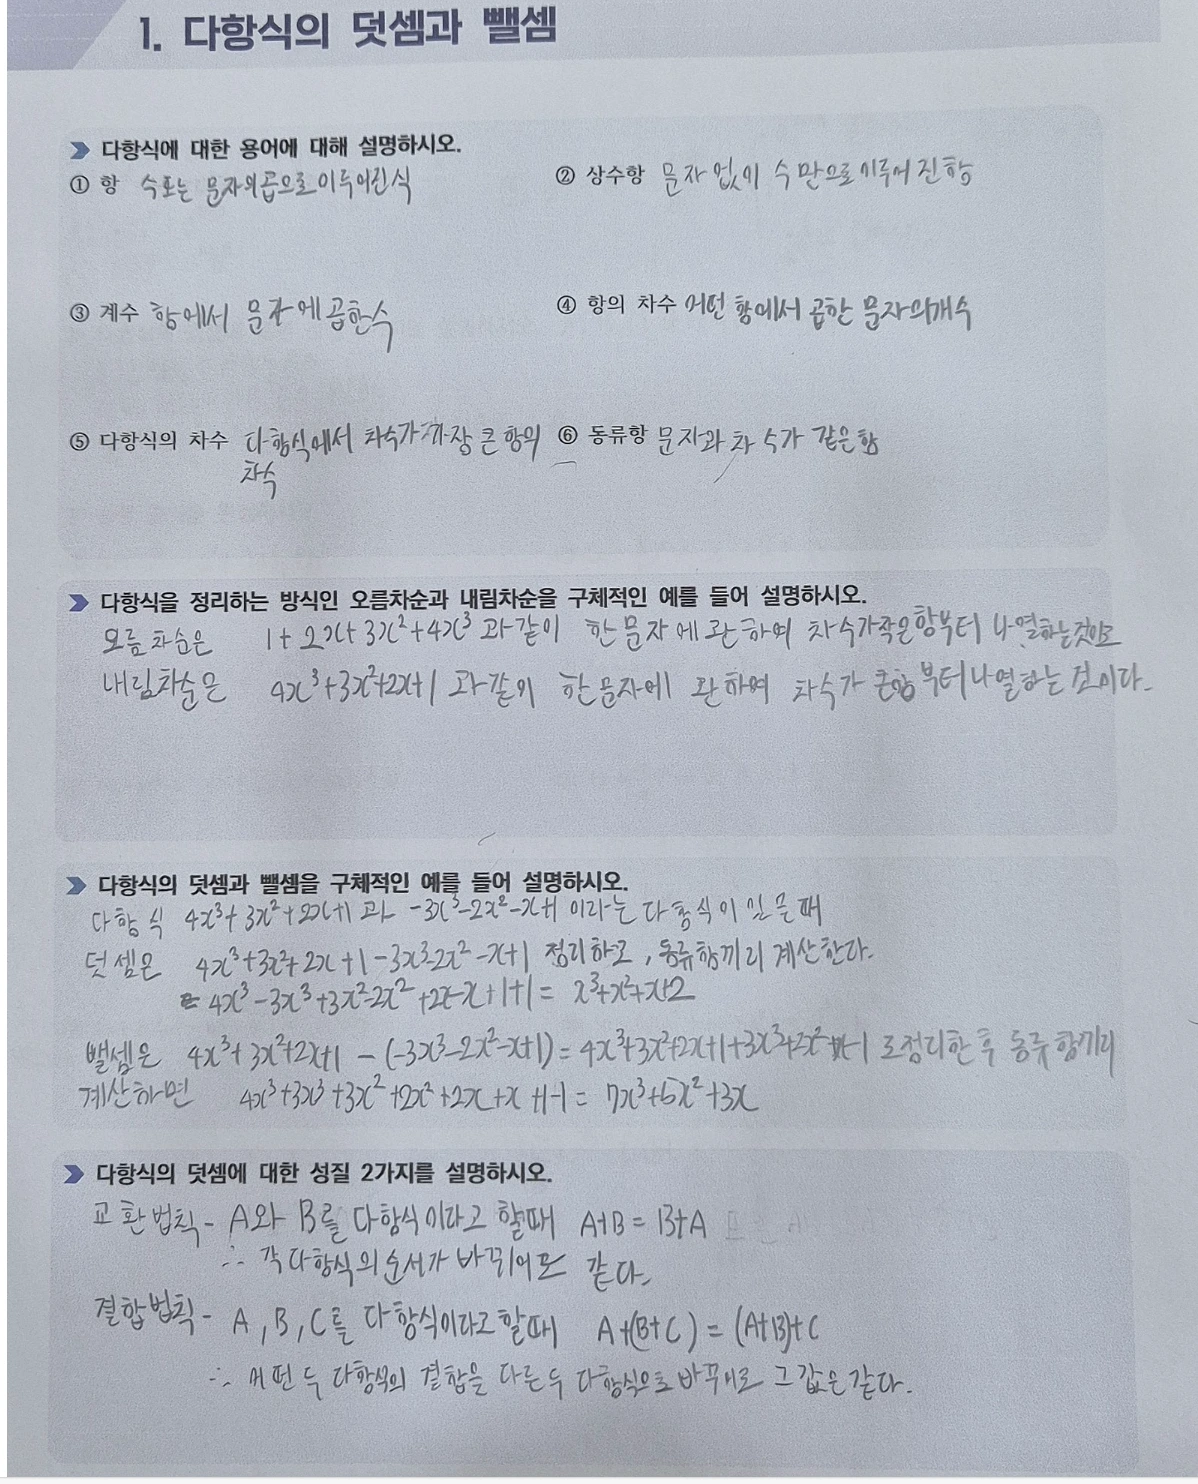 1. 다항식의 덧셈과 뺄셈
다항식에 대한 용어에 대해 설명하시오.
① 항 수 또는 문자의 곱으로 이루어진 식
② 상수항 문자 없이 수 만으로 이루어 진 항
③ 계수 항에서 문자에 곱한 수
④ 항의 차수 어떤 항에서 곱한 문자의 개수
⑤ 다항식의 차수 다항식에서 차수가 가장 큰 항의
차수
⑥ 동류항 문자과 차수가 같은 항
다항식을 정리하는 방식인 오름차순과 내림차순을 구체적인 예를 들어 설명하시오.
오름차순은 1+2x+3x²+4x³ 과 같이 한 문자에 관하여 차수가 작은 항부터 나열하는 것이고
내림차순은 4x³+3x²+2x+1 과 같이 한 문자에 관하여 차수가 큰 항부터 나열하는 것이다.
다항식의 덧셈과 뺄셈을 구체적인 예를 들어 설명하시오.
다항식 4x³+3x²+2x+1 과 -3x³-2x²-x+1 이라는 다항식이 있을 때
덧셈은 4x³+3x²+2x+1-3x³-2x²-x+1 정리하고, 동류항끼리 계산한다.
= 4x³-3x³+3x²-2x²+2x-x+1+1 = x³+x²+x+2
뺄셈은 4x³+3x²+2x+1 - (-3x³-2x²-x+1) = 4x³+3x²+2x+1+3x³+2x²+x-1 로 정리한 후 동류항끼리
계산하면 4x³+3x³+3x²+2x²+2x+x+1-1 = 7x³+5x²+3x
다항식의 덧셈에 대한 성질 2가지를 설명하시오.
교환법칙 - A와 B를 다항식이라고 할때 A+B = B+A
∴ 각 다항식의 순서가 바뀌어도 같다.
결합법칙 - A, B, C를 다항식이라고 할때 A+(B+C) = (A+B)+C
∴ 어떤 두 다항식의 결합을 다른 두 다항식으로 바꾸어도 그 값은 같다.